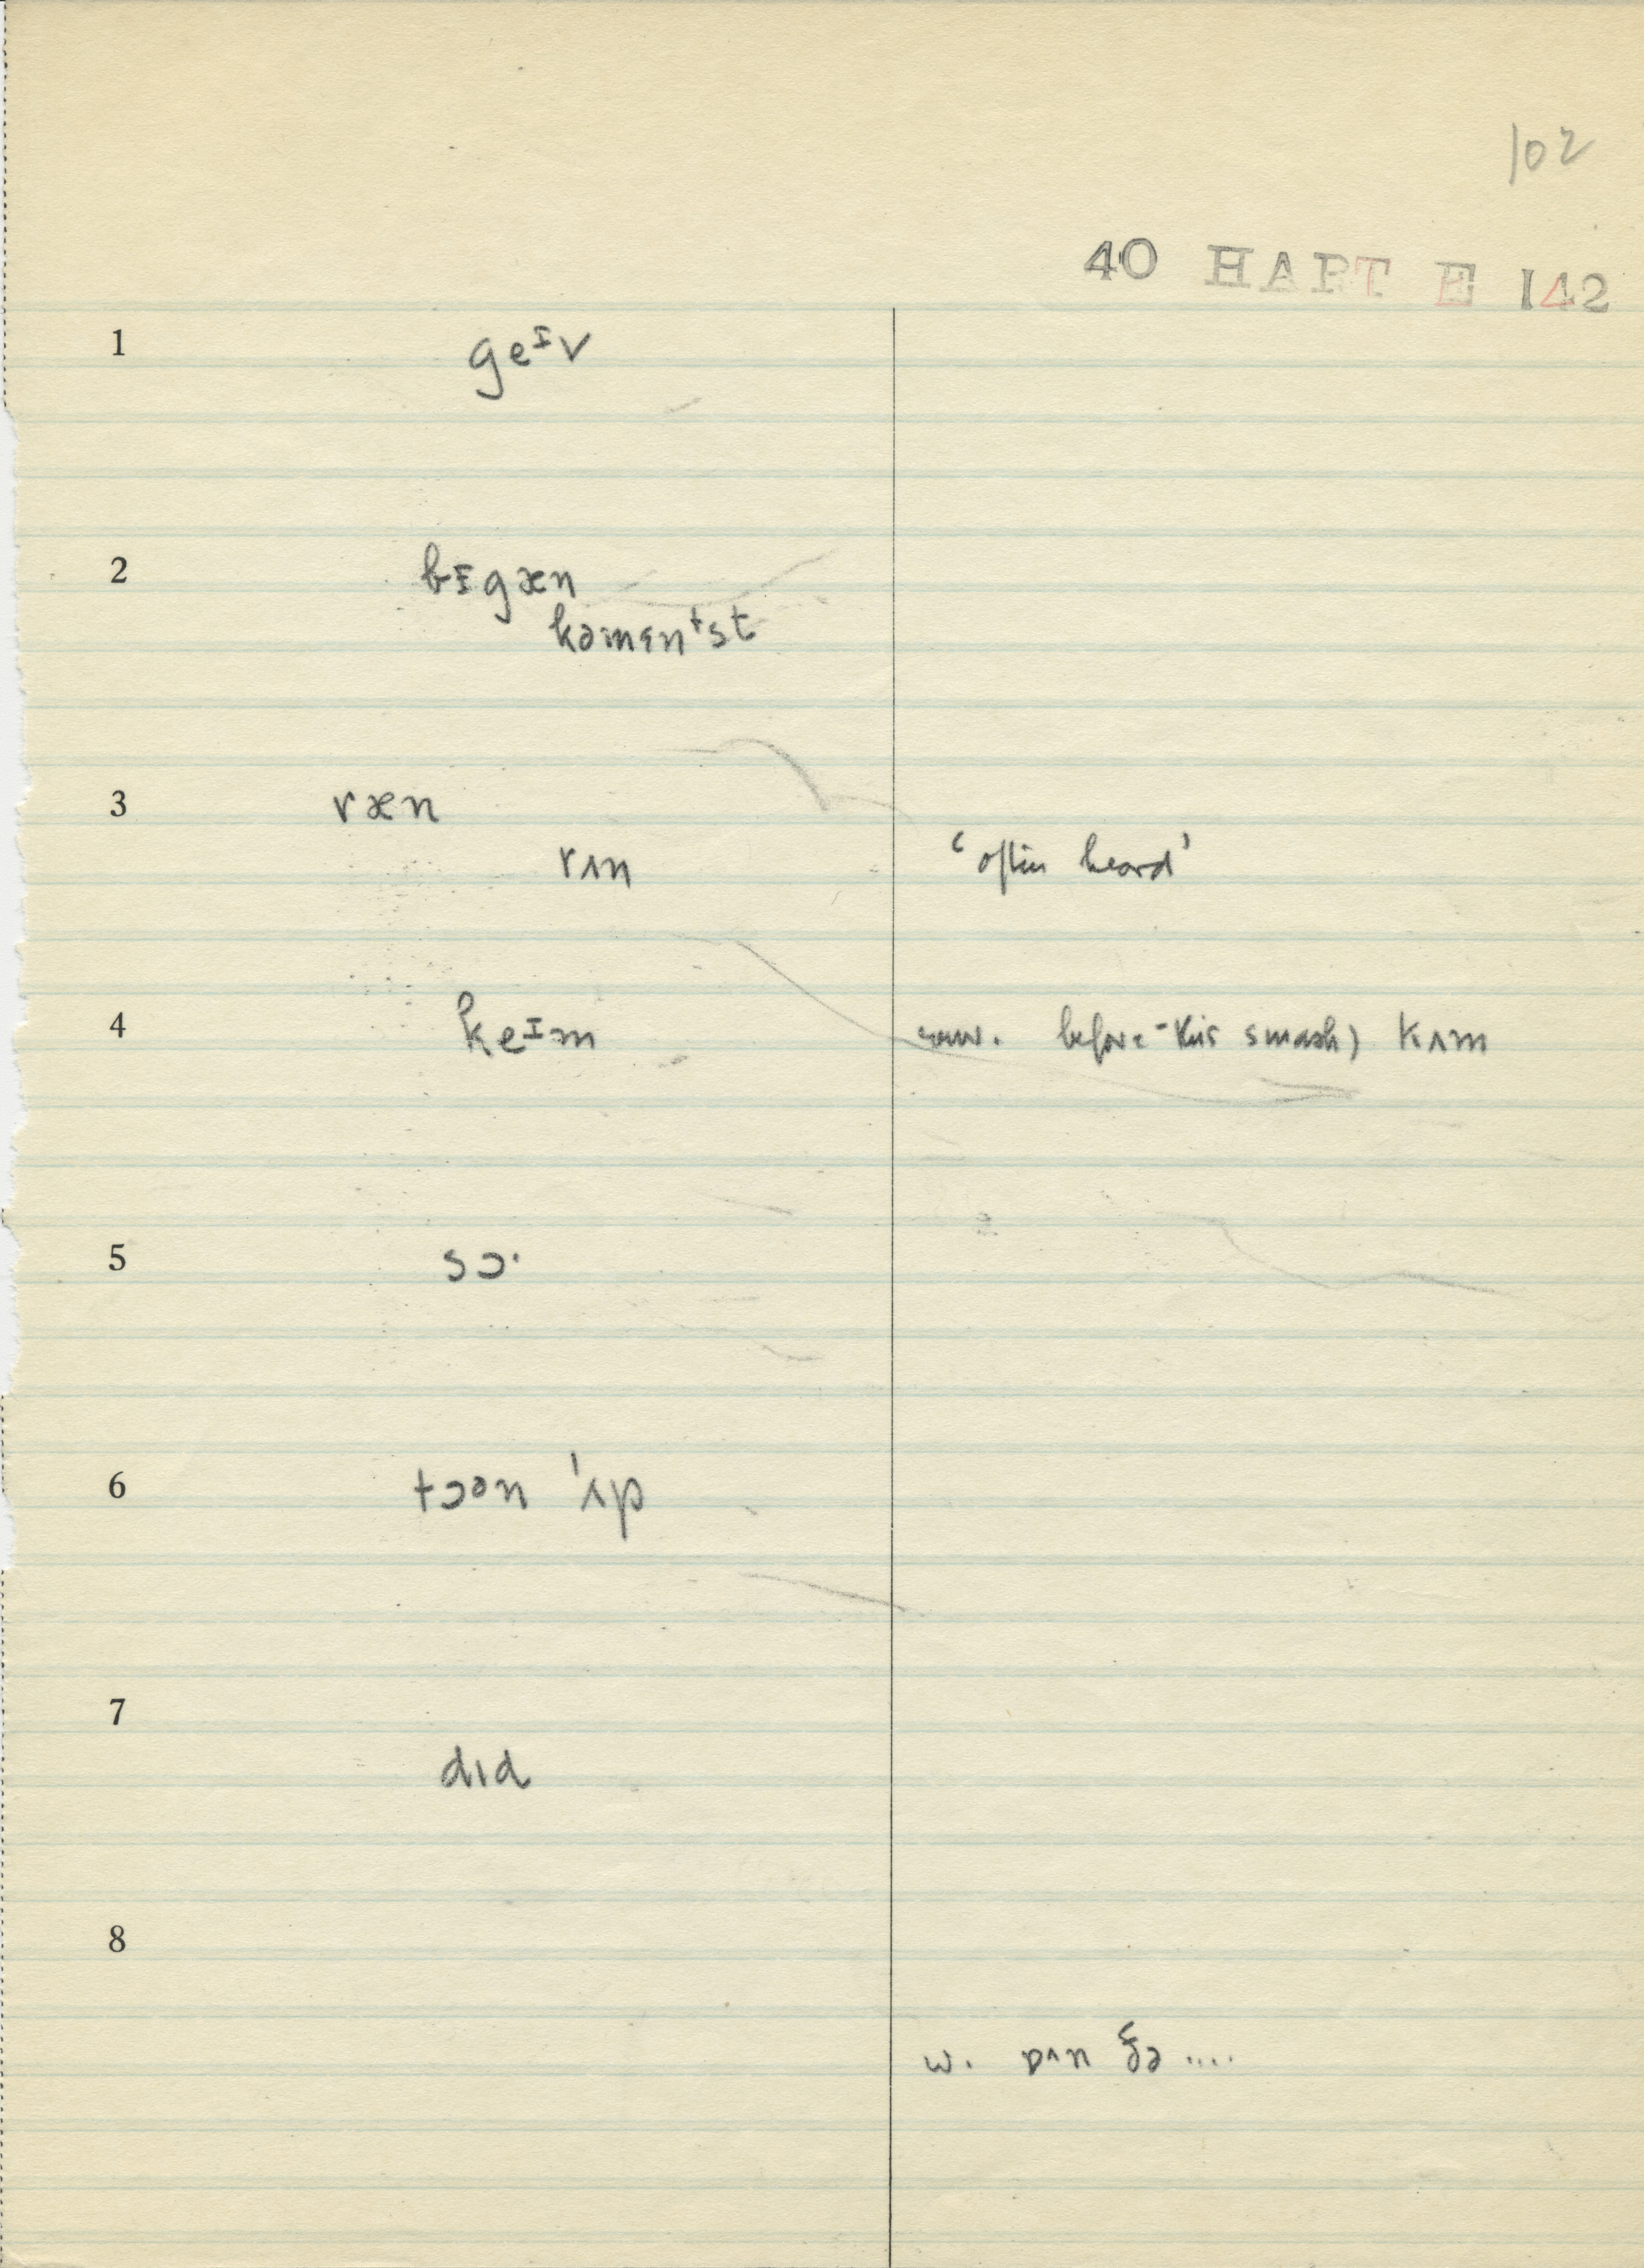 102
40 HART E 142
1 geᴵv
2 bɪgæn
kəmɛnᵗst
3 ræn
rʌn ‘often heard’
4 keᴵm conv. before this smash) kʌm
5 sɔ·
6 tɔən ˈʌp
7 dɪd
8
w. ɒn ðə ....